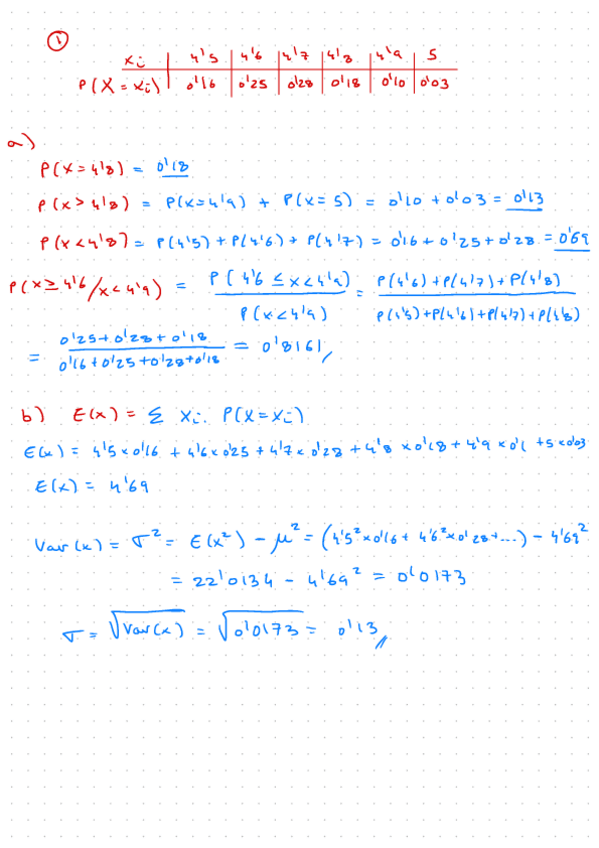 1
xi | 4'5 | 4'6 | 4'7 | 4'8 | 4'9 | 5
P(X=xi) | 0'16 | 0'25 | 0'28 | 0'18 | 0'10 | 0'03
a)
P(X=4'8) = 0'18
P(X>4'8) = P(X=4'9) + P(X=5) = 0'10 + 0'03 = 0'13
P(X<4'8) = P(4'5) + P(4'6) + P(4'7) = 0'16 + 0'25 + 0'28 = 0'69
P(X≥4'6/X<4'9) = P(4'6 ≤ X<4'9) / P(X<4'9) = P(4'6)+P(4'7)+P(4'8) / P(4'5)+P(4'6)+P(4'7)+P(4'8)
= 0'25+0'28+0'18 / 0'16+0'25+0'28+0'18 = 0'8161
b) E(x) = Σ xi. P(X=xi)
E(x) = 4'5×0'16 + 4'6×0'25 + 4'7×0'28 + 4'8×0'18 + 4'9×0'1 +5×0'03
E(x) = 4'69
Var(x) = σ² = E(x²) - μ² = (4'5²×0'16 + 4'6²×0'28+...) - 4'69²
= 22'0134 - 4'69² = 0'0173
σ = √Var(x) = √0'0173 = 0'13